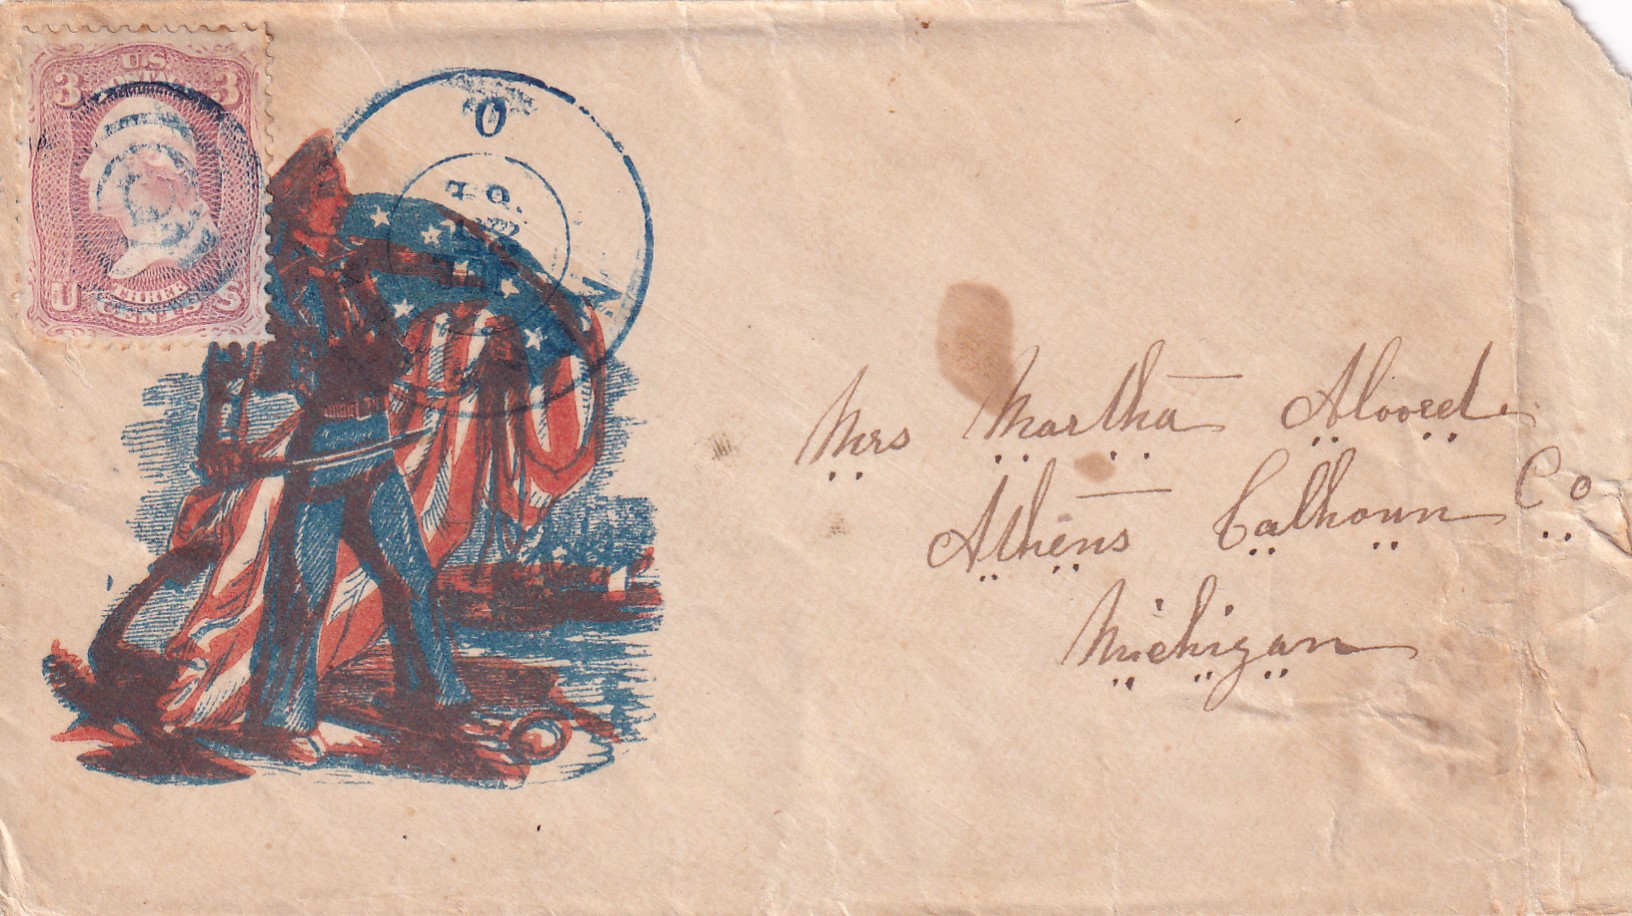 3 U.S. 3
POSTAGE
THREE
U CENTS S
O
N
Mrs Martha Alvord
Athens Calhoun Co
Michigan